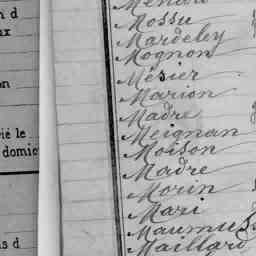 n d
ux
on
ié le
domic
s d
Mossu
Mardeley
Mognon
Mésier
Marion
Madre
Meignan
Moison
Madre
Morin
Mari
Maumus
Maillard